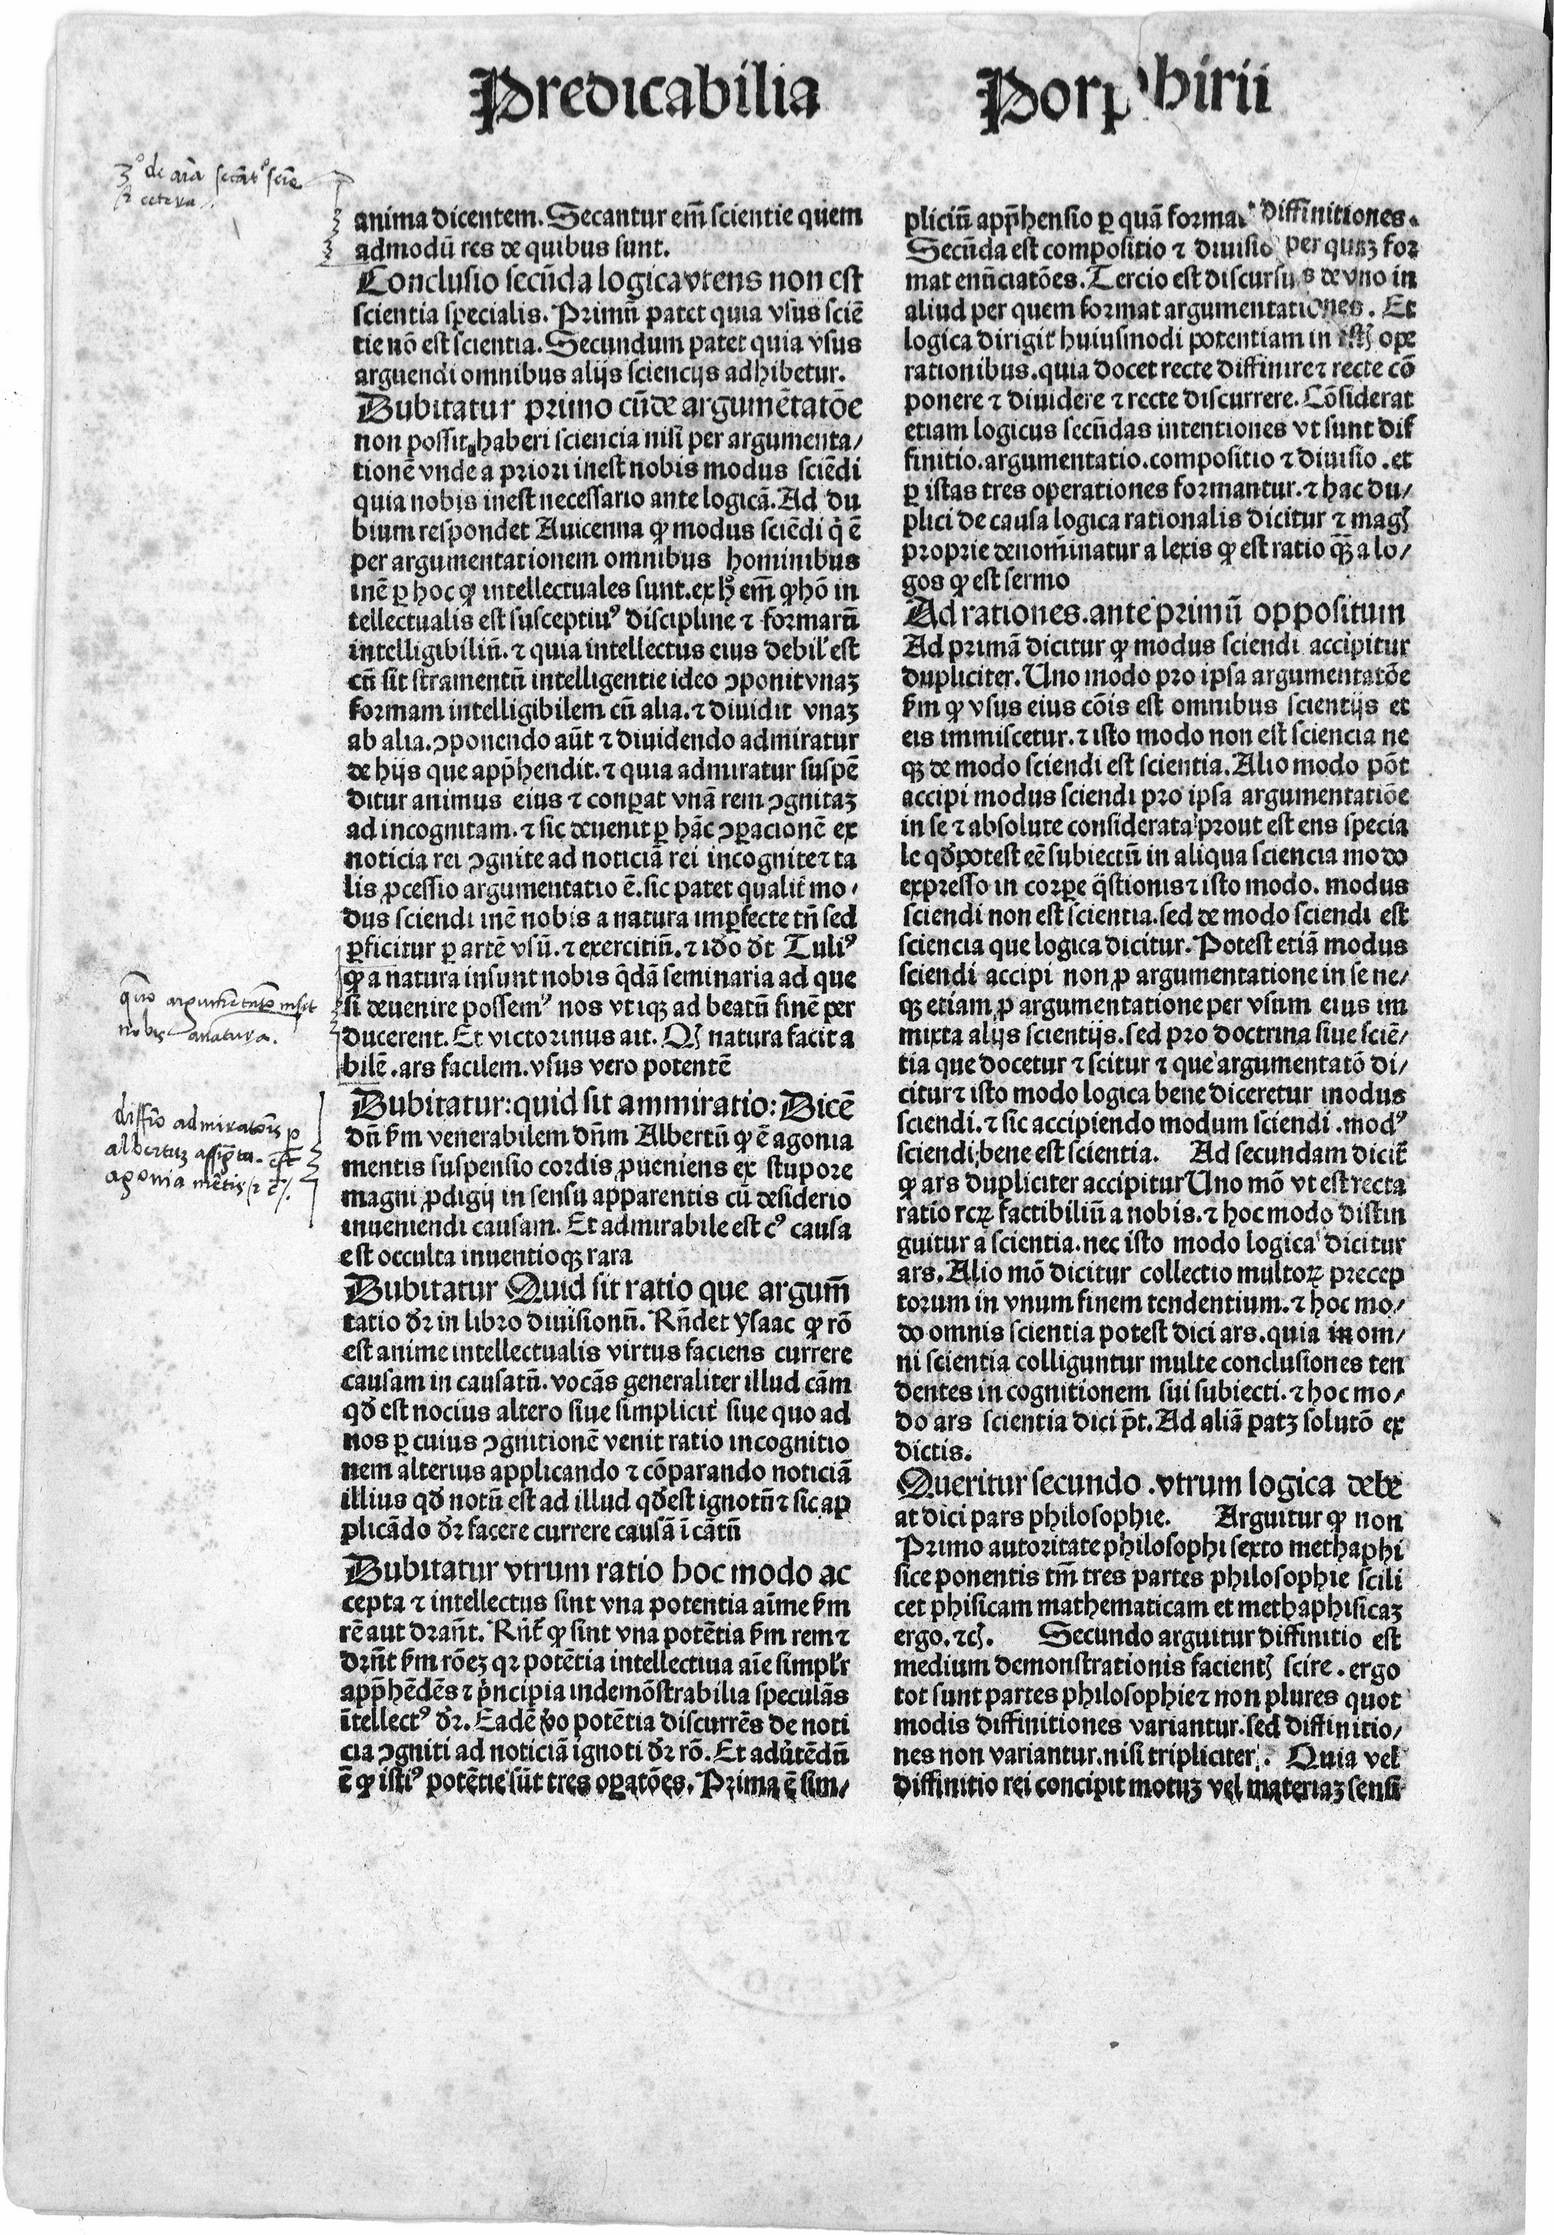 Predicabilia Porphirii
3º de aīa secāt² sciē
⁊ cetera
anima dicentem. Secantur em̄ scientie quem
admodū res de quibus sunt.
Conclusio secūda logica vtens non est
scientia specialis. Primū patet quia vsus sciē
tie nō est scientia. Secundum patet quia vsus
arguendi omnibus alijs sciencijs adhibetur.
Dubitatur primo cū de argumētatōe
non possit haberi sciencia nisi per argumenta/
tionē vnde a priori inest nobis modus sciēdi
quia nobis inest necessario ante logicā. Ad du
bium respondet Auicenna ꝙ modus sciēdi q̇ ē
per argumentationem omnibus hominibus
inē ꝑ hoc ꝙ intellectuales sunt. ex hꝰ em̄ ꝙ hō in
tellectualis est susceptiuꝰ discipline ⁊ formarū
intelligibiliū. ⁊ quia intellectus eius debil' est
cū sit stramentū intelligentie ideo ꝯponit vnaꝫ
formam intelligibilem cū alia. ⁊ diuidit vnaꝫ
ab alia. ꝯponendo aūt ⁊ diuidendo admiratur
de hijs que app̄hendit. ⁊ quia admiratur suspē
ditur animus eius ⁊ conꝑat vnā rem ꝯgnitaꝫ
ad incognitam. ⁊ sic deuenit ꝑ hāc ꝯꝑacionē ex
noticia rei ꝯgnite ad noticiā rei incognite ⁊ ta
lis ꝓcessio argumentatio ē. sic patet qualit̄ mo/
dus sciendi inē nobis a natura imꝑfecte tn̄ sed
ꝑficitur ꝑ artē vsū. ⁊ exercitiū. ⁊ iḋo ḋt Tuliꝰ
ꝙ a natura insunt nobis q̄dā seminaria ad que
si deuenire possemꝰ nos vtiqꝫ ad beatū finē per
ducerent. Et victorinus ait. Qꝫ natura facit a
bilē. ars facilem. vsus vero potentē
quō argumētatō insit
nobis anatura.
Dubitatur: quid sit ammiratio: Dicē
dū ẜm venerabilem dn̄m Albertū ꝙ ē agonia
mentis suspensio cordis ꝓueniens ex stupore
magni ꝓdigij in sensu apparentis cū desiderio
inueniendi causam. Et admirabile est cꝰ causa
est occulta inuentioqꝫ rara
diffīo admiratōis ꝑ
albertuꝫ . est
agonia mētis ⁊ c̄.
Dubitatur Quid sit ratio que argum̄
tatio ḋr in libro diuisionū. Rn̄det ysaac ꝙ rō
est anime intellectualis virtus faciens currere
causam in causatū. vocās generaliter illud cām
qḋ est nocius altero siue simplicit̄ siue quo ad
nos ꝑ cuius ꝯgnitionē venit ratio in cognitio
nem alterius applicando ⁊ cōparando noticiā
illius qḋ notū est ad illud qḋ est ignotū ⁊ sic ap
plicādo ḋr facere currere causā ī cātū
Dubitatur vtrum ratio hoc modo ac
cepta ⁊ intellectus sint vna potentia aīme ẜm
rē aut dr̄ant. Rn̄t ꝙ sint vna potētia ẜm rem ⁊
drn̄t ẜm rōeꝫ qꝛ potētia intellectiua aīe simpl'r
app̄hēdēs ⁊ p̄ncipia indemōstrabilia speculās
ītellectꝰ ḋr. Eadē v̊o potētia discurrēs de noti
cia ꝯgniti ad noticiā ignoti ḋr rō. Et adūtēdū
ē ꝙ istiꝰ potētie sūt tres oꝑatōes. Prima ē sim/
pliciū app̄hensio ꝑ quā format diffinitiones.
Secūda est compositio ⁊ diuisio per quaꝫ for
mat enūciatōes. Tercio est discursus de vno in
aliud per quem format argumentationes. Et
logica dirigit huiusmodi potentiam in istꝭ ope
rationibus. quia docet recte diffinire ⁊ recte cō
ponere ⁊ diuidere ⁊ recte discurrere. Cōsiderat
etiam logicus secūdas intentiones vt sunt dif
finitio. argumentatio. compositio ⁊ diuisio. et
ꝑ istas tres operationes formantur. ⁊ hac du/
plici de causa logica rationalis dicitur ⁊ magꝭ
proprie denominatur a lexis ꝙ est ratio qꝫ̄ a lo/
gos ꝙ est sermo
Ad rationes. ante primū oppositum
Ad primā dicitur ꝙ modus sciendi accipitur
dupliciter. Uno modo pro ipsa argumentatōe
ẜm ꝙ vsus eius cōis est omnibus scientijs et
eis immiscetur. ⁊ isto modo non est sciencia ne
qꝫ de modo sciendi est scientia. Alio modo pōt
accipi modus sciendi pro ipsa argumentatiōe
in se ⁊ absolute considerata prout est ens specia
le qḋ potest eē subiectū in aliqua sciencia modo
expresso in corpe q̄stionis ⁊ isto modo. modus
sciendi non est scientia. sed de modo sciendi est
sciencia que logica dicitur. Potest etiā modus
sciendi accipi non ꝓ argumentatione in se ne/
qꝫ etiam ꝓ argumentatione per vsum eius im
mixta alijs scientijs. sed pro doctrina siue sciē/
tia que docetur ⁊ scitur ⁊ que argumentatō di/
citur ⁊ isto modo logica bene diceretur modus
sciendi. ⁊ sic accipiendo modum sciendi. modꝰ
sciendi bene est scientia. Ad secundam dicit̄
ꝙ ars dupliciter accipitur Uno mō vt est recta
ratio reꝝ factibiliū a nobis. ⁊ hoc modo distin
guitur a scientia. nec isto modo logica dicitur
ars. Alio mō dicitur collectio multoꝝ precep
torum in vnum finem tendentium. ⁊ hoc mo/
do omnis scientia potest dici ars. quia in om/
ni scientia colliguntur multe conclusiones ten
dentes in cognitionem sui subiecti. ⁊ hoc mo/
do ars scientia dici p̄t. Ad aliā patꝫ solutō ex
dictis.
Queritur secundo. vtrum logica debe
at dici pars philosophie. Arguitur ꝙ non
Primo autoritate philosophi sexto methaphi
sice ponentis tm̄ tres partes philosophie scili
cet phisicam mathematicam et methaphisicaꝫ
ergo. ⁊cꝭ. Secundo arguitur diffinitio est
medium demonstrationis facientꝭ scire. ergo
tot sunt partes philosophie ⁊ non plures quot
modis diffinitiones variantur. sed diffinitio/
nes non variantur. nisi tripliciter. Quia vel
diffinitio rei concipit motuꝫ vel materiaꝫ sensi